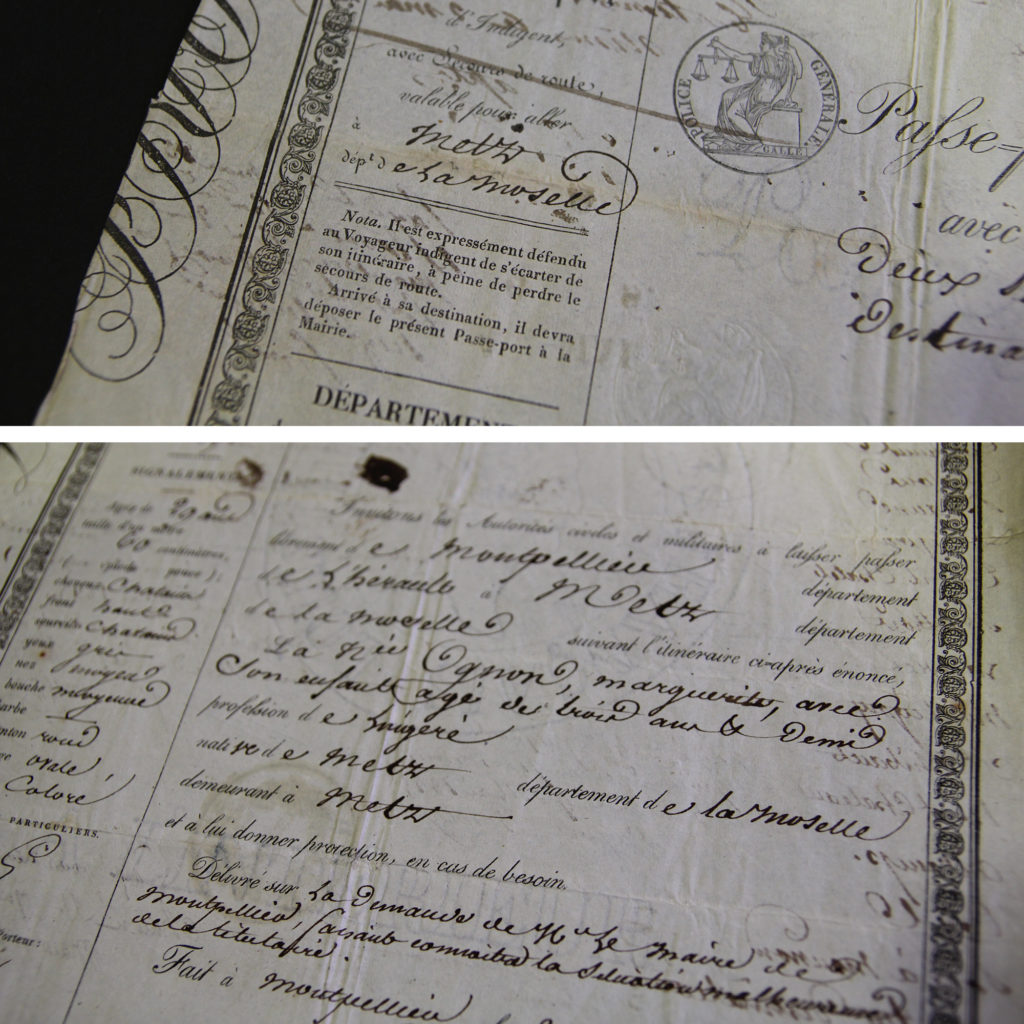 d'Indigent,
avec Secours de route,
valable pour aller
à Metz
dépt. de La Moselle
Nota. Il est expressément défendu
au Voyageur indigent de s'écarter de
son itinéraire, à peine de perdre le
secours de route.
Arrivé à sa destination, il devra
déposer le présent Passe-port à la
Mairie.
DÉPARTEMENT
POLICE GÉNÉRALE.
GALLE
Passe=p
avec
Deux
destina
SIGNALEMENT
Agé de 29 ans
taille d'un mètre
60 centimètres,
cheveux Chatain
front haut
sourcils Chatain
yeux gris
nez moyen
bouche moyenne
barbe
menton rond
ovale,
Coloré
PARTICULIERS.
Porteur :
Invitons les Autorités civiles et militaires à laisser passer
de Montpellier département
de L'hérault à Metz département
de la moselle suivant l'itinéraire ci-après énoncé,
La née Ognon, marguerite, avec
Son enfant agé de trois ans & Demi
profession de Lingère
native de Metz département de la Moselle
demeurant à Metz
et à lui donner protection, en cas de besoin.
Délivré sur La demande de Mr Le Maire de
Montpellier, faisant connaitre la Situation malheureuse
de la titulaire.
Fait à Montpellier